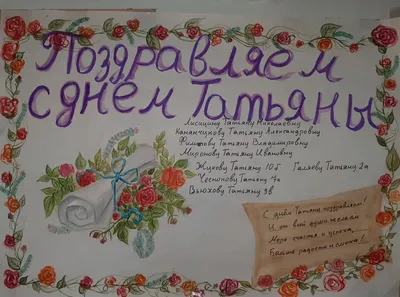 Поздравляем
с днём Татьяны
Лисицину Татьяну Николаевну
Канапчукову Татьяну Александровну
Филатову Татьяну Владимировну
Миронову Татьяну Ивановну
Жукову Татьяну 10б Галяеву Татьяну 2а
Чеснокову Татьяну 7а
Вьюхову Татьяну 9в
С днём Татьяны поздравляем!
И от всей души желаем
Моря счастья и успеха,
Больше радости и смеха!